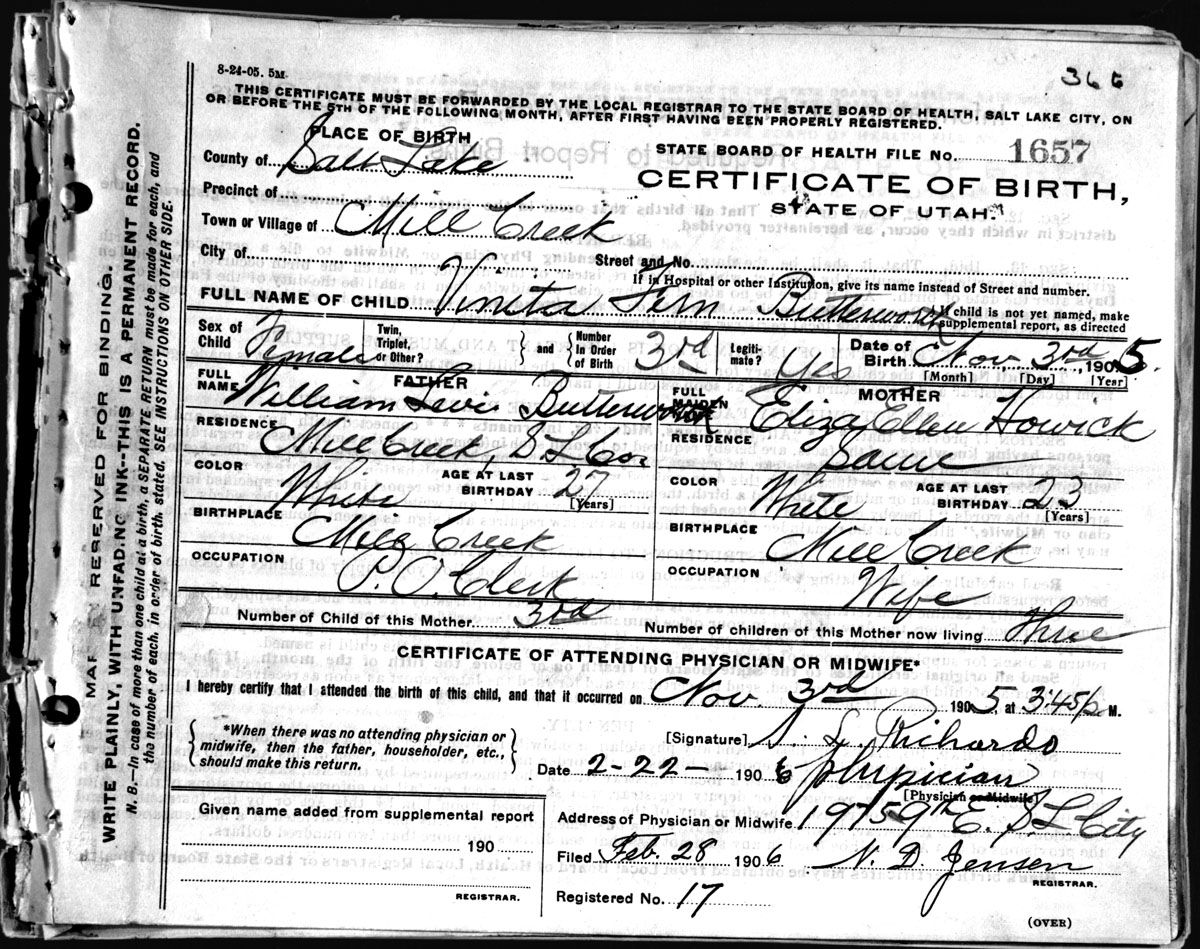 8-24-05. 5M.
366
THIS CERTIFICATE MUST BE FORWARDED BY THE LOCAL REGISTRAR TO THE STATE BOARD OF HEALTH, SALT LAKE CITY, ON
OR BEFORE THE 5TH OF THE FOLLOWING MONTH, AFTER FIRST HAVING BEEN PROPERLY REGISTERED.
PLACE OF BIRTH
County of Salt Lake
STATE BOARD OF HEALTH FILE No. 1657
CERTIFICATE OF BIRTH,
STATE OF UTAH.
Precinct of
Town or Village of Mill Creek
City of Street and No.
If in Hospital or other Institution, give its name instead of Street and number.
FULL NAME OF CHILD Vineta Fern Butterworth
If child is not yet named, make supplemental report, as directed
Sex of Child Female Twin, Triplet, or Other? } and { Number In Order of Birth 3rd Legiti-mate? Yes Date of Birth Nov, 3rd, 1905.
[Month] [Day] [Year]
FATHER
FULL NAME William Levi Butterworth
RESIDENCE Mill Creek, S L Co.
COLOR White AGE AT LAST BIRTHDAY 27 [Years]
BIRTHPLACE Mill Creek
OCCUPATION P. O. Clerk
MOTHER
FULL MAIDEN NAME Eliza Ellen Howick
RESIDENCE Same
COLOR White AGE AT LAST BIRTHDAY 23 [Years]
BIRTHPLACE Mill Creek
OCCUPATION Wife
Number of Child of this Mother 3rd Number of children of this Mother now living Three
CERTIFICATE OF ATTENDING PHYSICIAN OR MIDWIFE*
I hereby certify that I attended the birth of this child, and that it occurred on Nov. 3rd 1905, at 3:45 p. M.
{ *When there was no attending physician or midwife, then the father, householder, etc., should make this return. }
[Signature] S. L. Richards
Date 2-22- 1906 physician
[Physician or Midwife]
Address of Physician or Midwife 975 9th E. S L City
Given name added from supplemental report
190
REGISTRAR.
Filed Feb. 28 1906 N. D. Jensen
REGISTRAR.
Registered No. 17
(OVER)
MARGIN RESERVED FOR BINDING.
WRITE PLAINLY, WITH UNFADING INK--THIS IS A PERMANENT RECORD.
N. B.—In case of more than one child at a birth, a SEPARATE RETURN must be made for each, and
the number of each, in order of birth, stated. SEE INSTRUCTIONS ON OTHER SIDE.